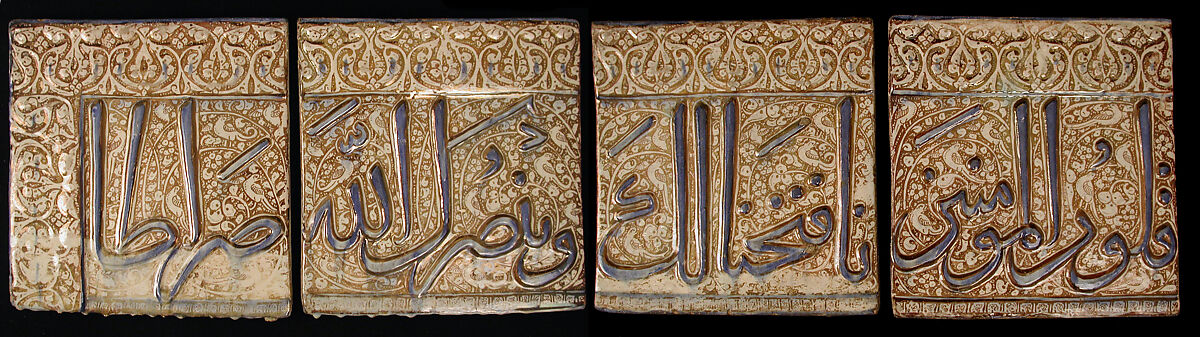 قلوب المومنين
نا فتحنا لك
وينصرك الله
صراطا